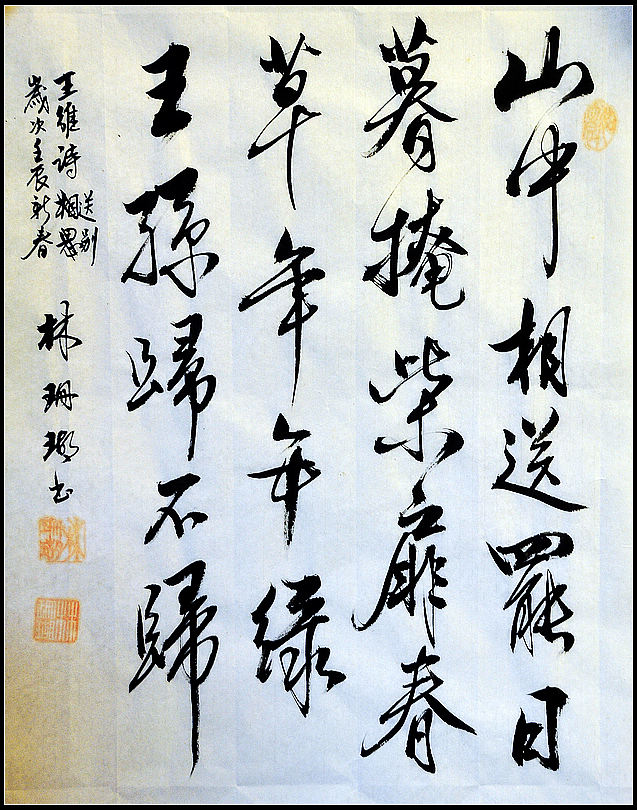 山中相送罷日
暮掩柴扉春
草年年綠
王孫歸不歸
王維詩送别
歲次壬辰新春
林珊瑚书